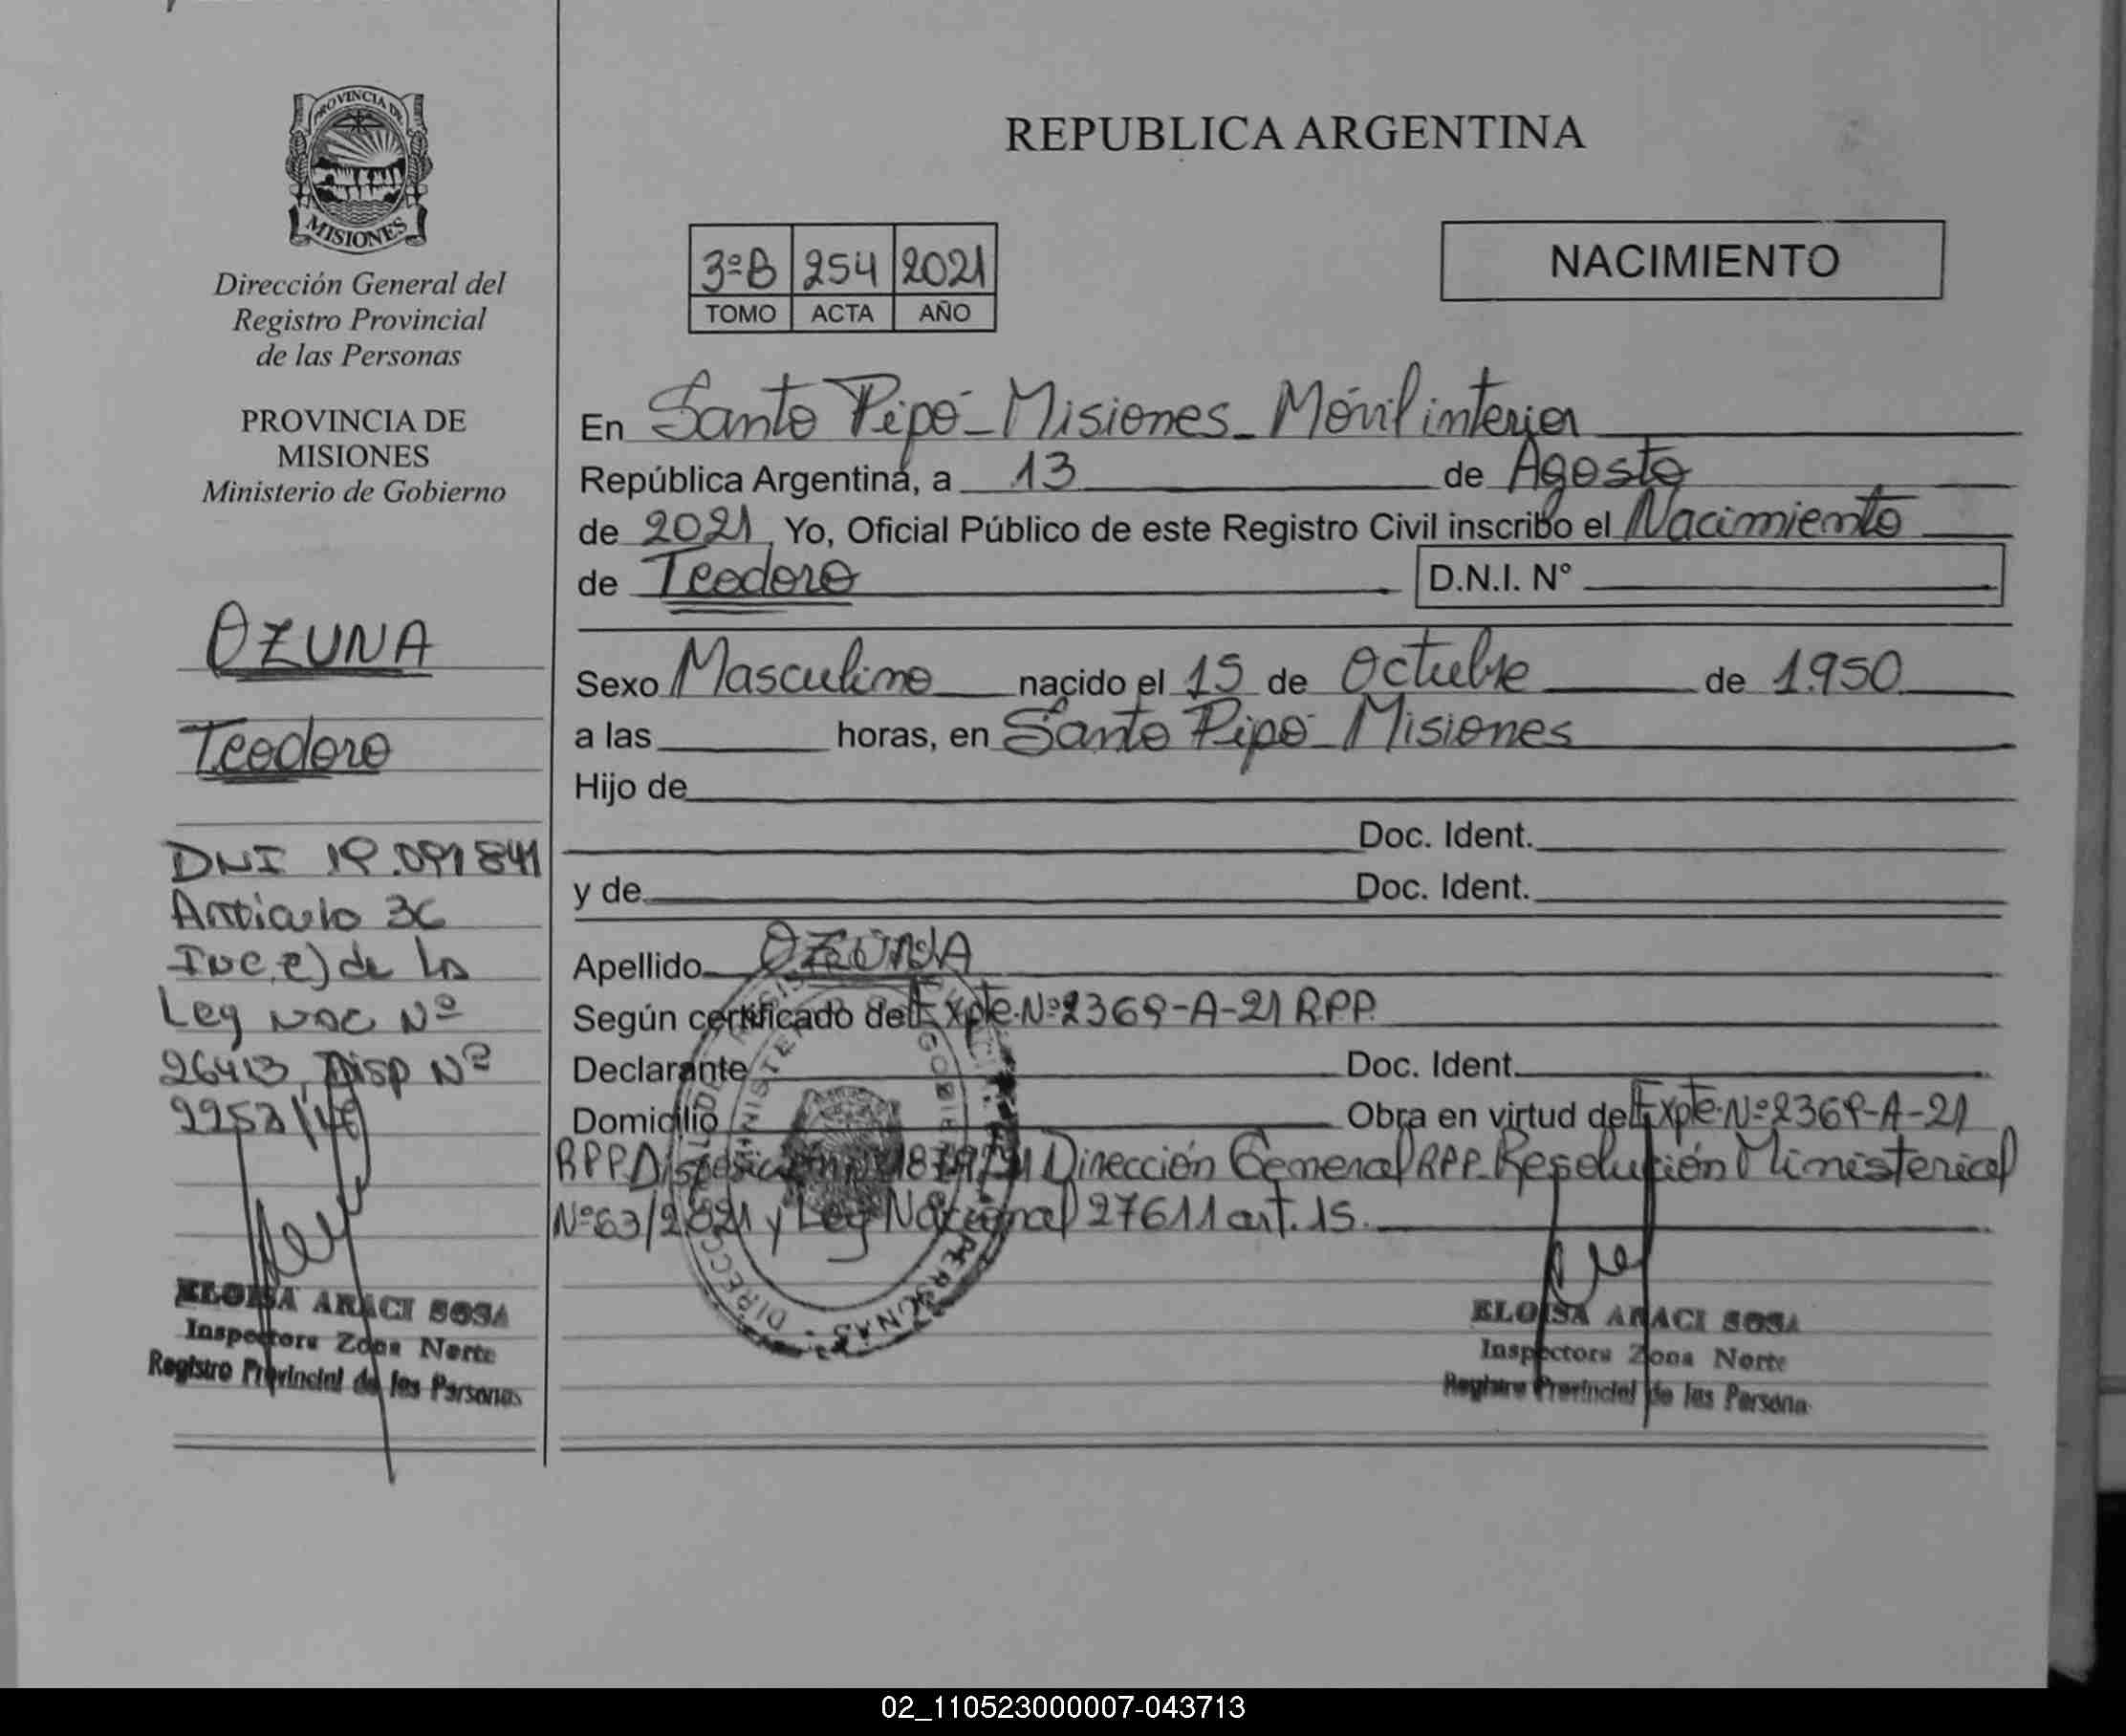 PROVINCIA DE
MISIONES
Dirección General del
Registro Provincial
de las Personas
PROVINCIA DE
MISIONES
Ministerio de Gobierno
OZUNA
Teodoro
DNI
Articulo 36
Inc. e) de la
Ley nac Nº
26413, Disp Nº
ELOISA ARACI SOSA
Inspectora Zona Norte
Registro Provincial de las Personas
REPUBLICA ARGENTINA
3ºB 254 2021
TOMO ACTA AÑO
NACIMIENTO
En Santo Pipó - Misiones - Móvil interior
República Argentina, a 13 de Agosto
de 2021, Yo, Oficial Público de este Registro Civil inscribo el Nacimiento
de Teodoro D.N.I. N°
Sexo Masculino nacido el 15 de Octubre de 1.950
a las horas, en Santo Pipó - Misiones
Hijo de
Doc. Ident.
y de Doc. Ident.
Apellido OZUNA
Según certificado del Expte. Nº 2369-A-21 RPP.
Declarante Doc. Ident.
Domicilio Obra en virtud del Expte. Nº 2369-A-21
RPP. Disposición Dirección General RPP. Resolución Ministerial
Nº 63/2021 y Ley Nacional 27611 art. 15.
ELOISA ARACI SOSA
Inspectora Zona Norte
Registro Provincial de las Persona
02_110523000007-043713